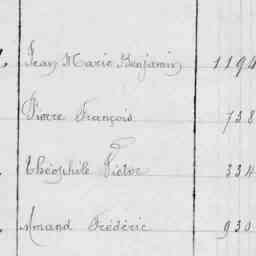 Jean Marie Benjamin 1194
Pierre François 738
Théophile Victor 334
Amand Frédéric 930